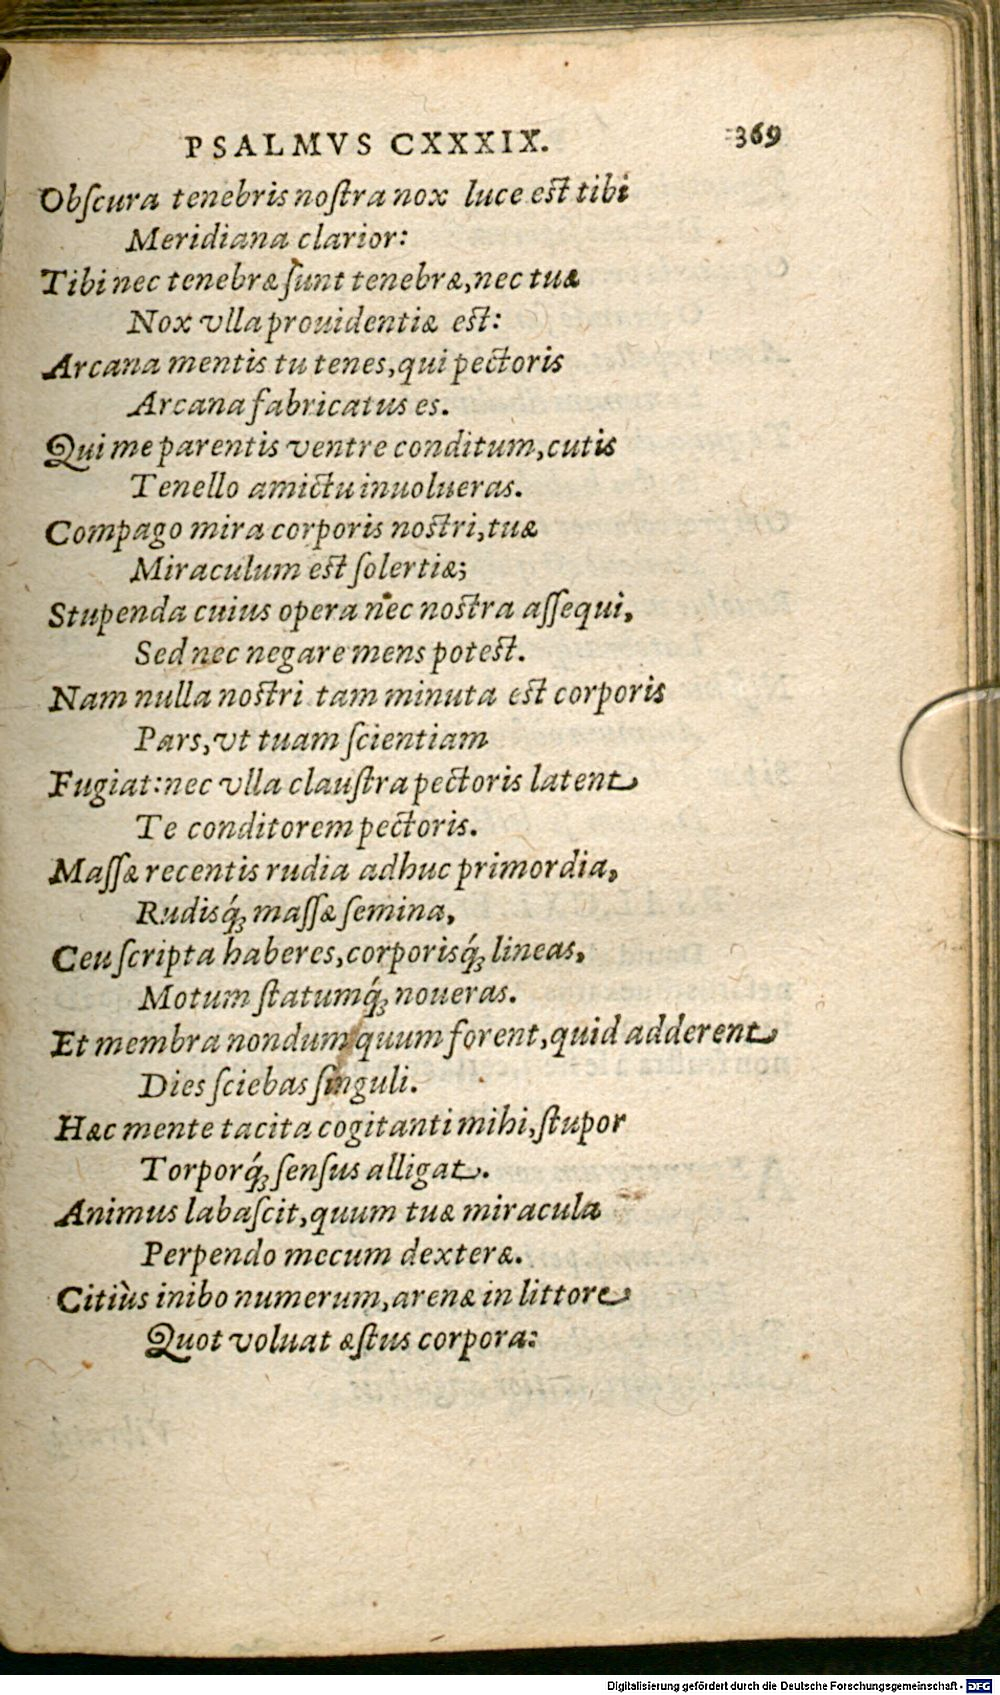 PSALMVS CXXXIX. 369
Obſcura tenebris noſtra nox luce est tibi
Meridiana clarior:
Tibi nec tenebræ ſunt tenebræ, nec tuæ
Nox vlla prouidentiæ est:
Arcana mentis tu tenes, qui pectoris
Arcana fabricatus es.
Qui me parentis ventre conditum, cutis
Tenello amictu inuolueras.
Compago mira corporis nostri, tuæ
Miraculum est ſolertiæ;
Stupenda cuius opera nec nostra aſſequi,
Sed nec negare mens potest.
Nam nulla nostri tam minuta est corporis
Pars, vt tuam ſcientiam
Fugiat: nec vlla clauſtra pectoris latent
Te conditorem pectoris.
Maſſæ recentis rudia adhuc primordia,
Rudisq́; maſſæ ſemina,
Ceu ſcripta haberes, corporisq́; lineas,
Motum ſtatumq́; noueras.
Et membra nondum quum forent, quid adderent
Dies ſciebas ſinguli.
Hæc mente tacita cogitanti mihi, ſtupor
Torporq́; ſenſus alligat.
Animus labaſcit, quum tuæ miracula
Perpendo mecum dexteræ.
Citiùs inibo numerum, arenæ in littore
Quot voluat æſtus corpora:
Digitalisierung gefördert durch die Deutsche Forschungsgemeinschaft - DFG